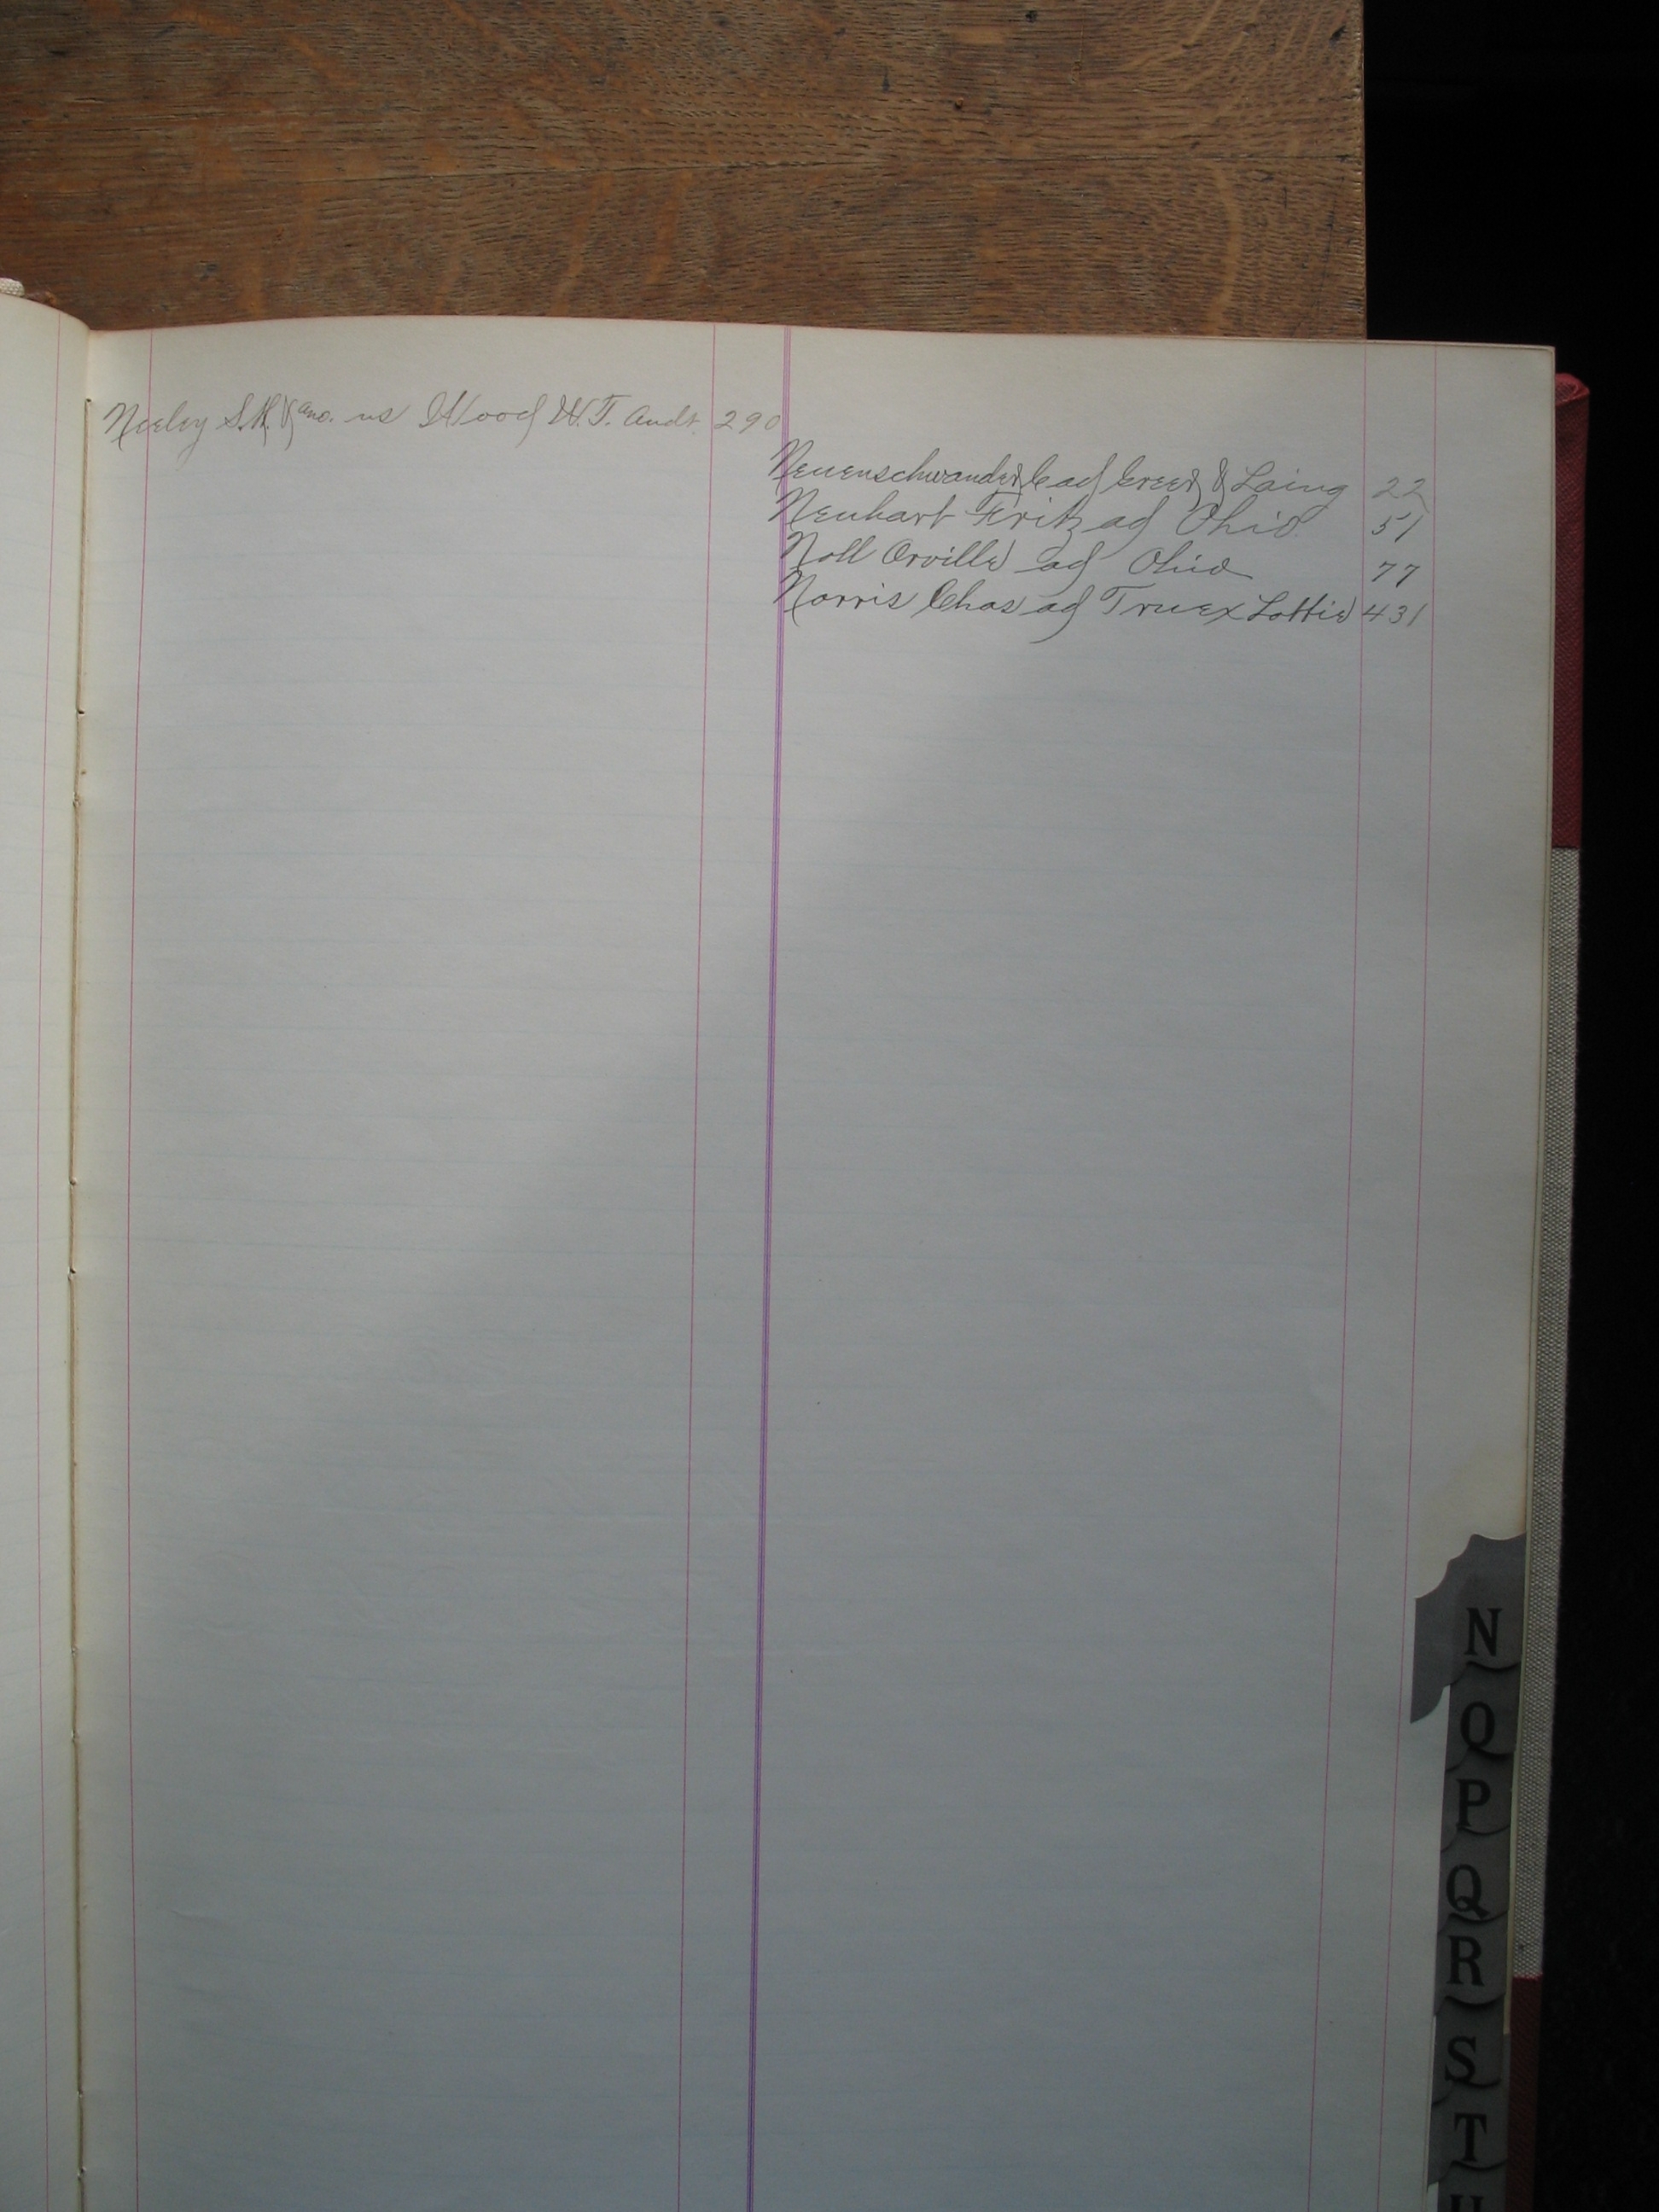 Neeley S.M. & ano. vs Wood W.T. Audt. 290
Neuenschwander C ad Greer & Laing 22
Neuhart Fritz ad Ohio 51
Noll Orville ad Ohio 77
Norris Chas ad Truex Lottie 431
N
O
P
Q
R
S
T
U